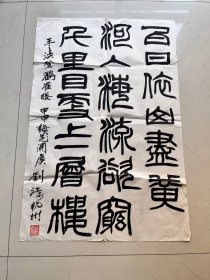 白日依山盡黃
河入海流欲窮
千里目更上一層樓
王渙登鸛雀樓 甲申 劉 杭州